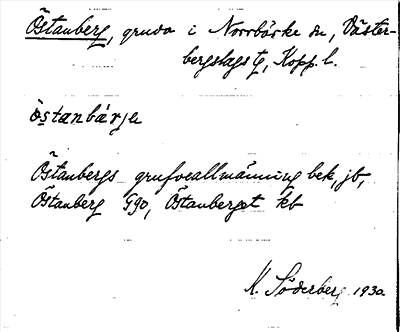 Östanberg, gruva i Norrbärke sn, Väster-
bergslags tg, Kopp. l.
östanbárje
Östanbergs grufveallmänning bek, jb,
Östanberg G90, Östanberget kb
K. Söderberg 1930.